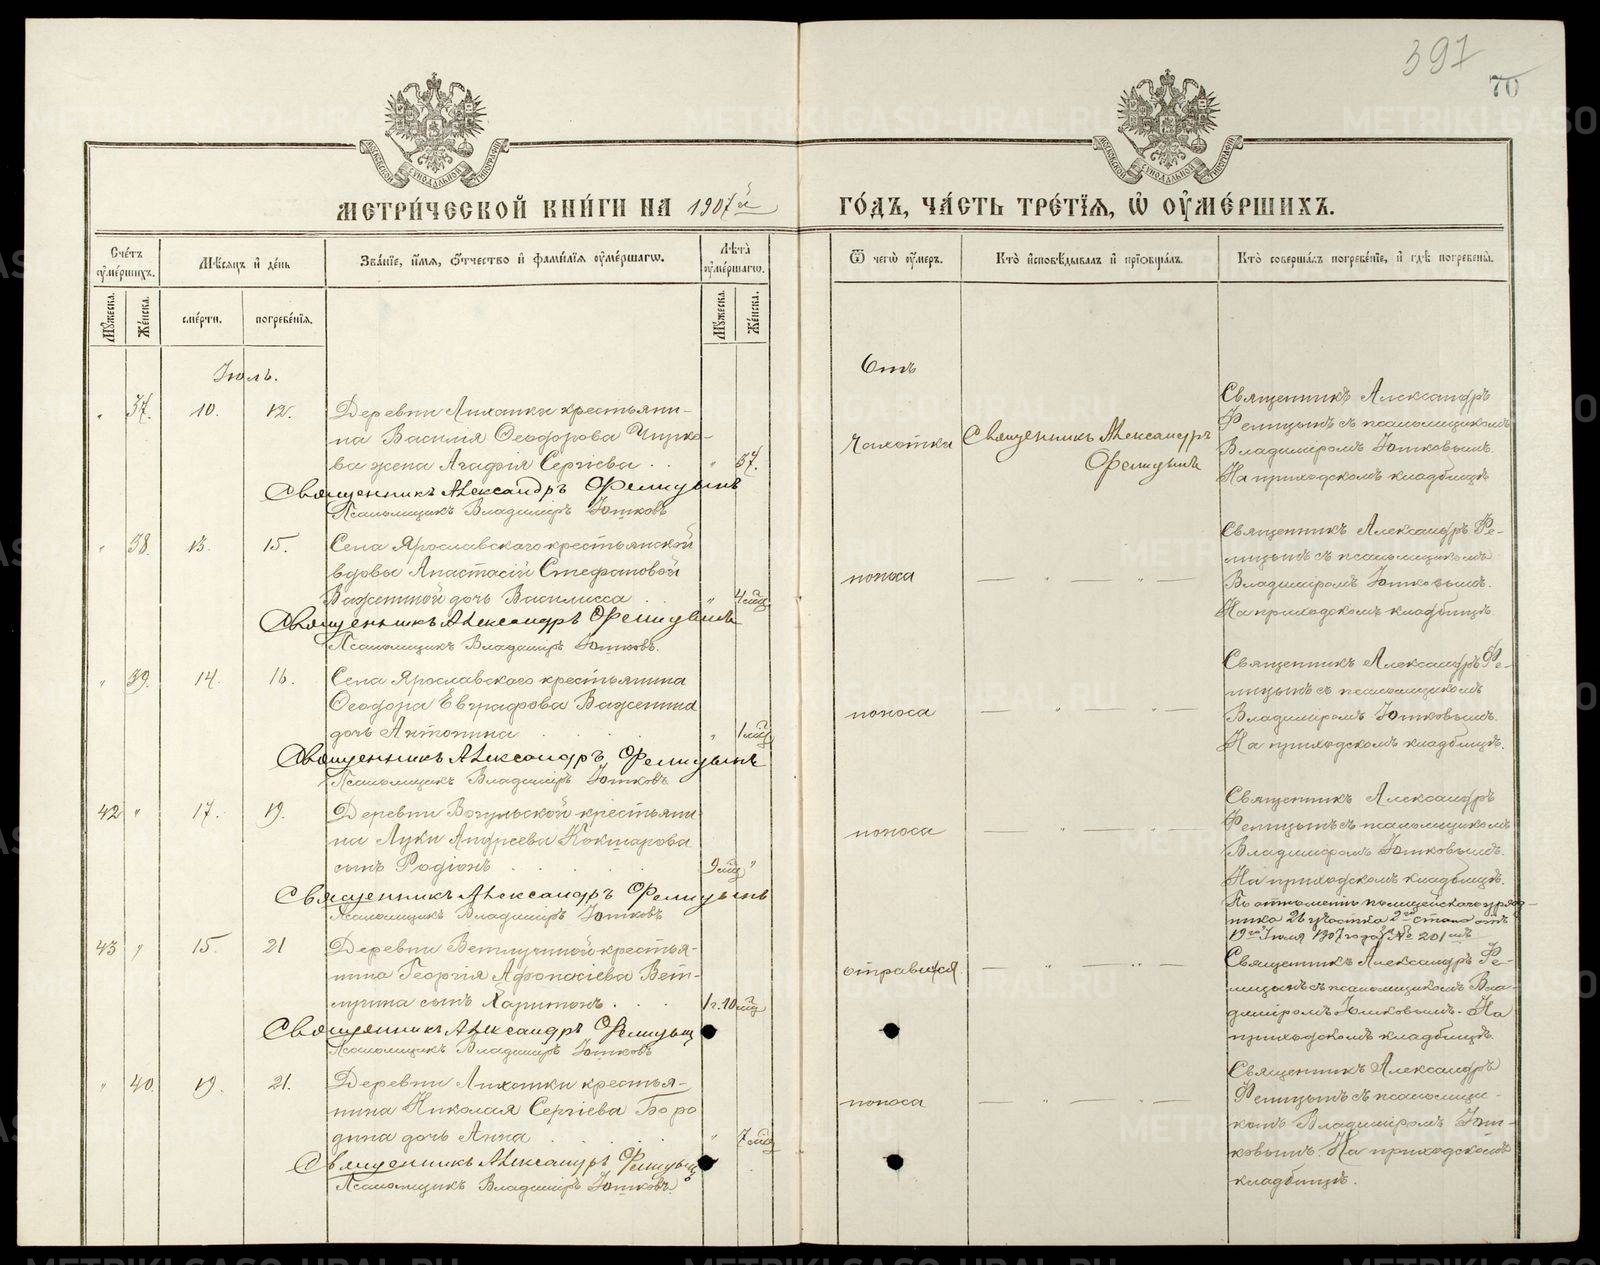 391
70
МОСКОВСКОЙ СѴНОДАЛЬНОЙ ТИПОГРАФІИ
МОСКОВСКОЙ СѴНОДАЛЬНОЙ ТИПОГРАФІИ
МЕТРИ́ЧЕСКОЙ КНИ́ГИ НА 1907й
ГО́ДЪ, ЧА́СТЬ ТРЕ́ТІѦ, Ѡ҆ ОУ҆МЕ́РШИХЪ.
Сче́тъ оу҆ме́ршихъ.
Мѣ́сяцъ и҆ де́нь
Зва́ніе, и҆́мя, ѻ҆́тчество и҆ фами́лія оу҆ме́ршагѡ.
Лѣ́та оу҆ме́ршагѡ.
Ѿ чегѡ̀ оу҆́меръ.
Кто̀ и҆сповѣ́дывалъ и҆ прїѡбща́лъ.
Кто̀ соверша́лъ погребе́ніе, и҆ гдѣ̀ погребены̀.
Мꙋ́жеска.
Же́нска.
сме́рти.
погребе́нія.
Мꙋ́жеска.
Же́нска.
Іюль.
Отъ
" 37. 10. 12. Деревни Лихачки крестьяни-
на Василія Ѳеодорова Чирко-
ва жена Агафія Сергіева . . " 57.
Священникъ Александръ Фелицынъ
Псаломщикъ Владиміръ Ютковъ
чахотка
Священникъ Александръ
Фелицынъ
Священникъ Александръ
Фелицынъ съ псаломщикомъ
Владиміромъ Ютковымъ.
На приходскомъ кладбищѣ
" 38. 13. 15. Села Ярославскаго крестьянской
вдовы Анастасіи Стефановой
Важениной дочь Василисса . . " 4 мѣс.
Священникъ Александръ Фелицынъ
Псаломщикъ Владиміръ Ютковъ.
поноса — " — " —
Священникъ Александръ Фе-
лицынъ съ псаломщикомъ
Владиміромъ Ютковымъ.
На приходскомъ кладбищѣ.
" 39. 14. 16. Села Ярославскаго крестьянина
Ѳеодора Евграфова Важенина
дочь Антонина . . . " 1 мѣс.
Священникъ Александръ Фелицынъ
Псаломщикъ Владиміръ Ютковъ
поноса — " — " —
Священникъ Александръ Фе-
лицынъ съ псаломщикомъ
Владиміромъ Ютковымъ.
На приходскомъ кладбищѣ.
42 " 17. 19. Деревни Вогульской крестьяни-
на Луки Андреева Кокшарова
сынъ Родіонъ . . . . 9 мѣс. "
Священникъ Александръ Фелицынъ
Псаломщикъ Владиміръ Ютковъ
поноса — " — " —
Священникъ Александръ
Фелицынъ съ псаломщикомъ
Владиміромъ Ютковымъ.
На приходскомъ кладбищѣ.
По отношенію полицейскаго уряд-
ника 26 участка 2го стана отъ
19го Іюля 1907 года № 201мъ
43 " 15. 21 Деревни Ветлугиной крестья-
нина Георгія Афонасіева Вет-
лугина сынъ Харитонъ . . . 1 г. 10 мѣс.
Священникъ Александръ Фелицын
Псаломщикъ Владиміръ Ютковъ
отравился. — " — " —
Священникъ Александръ Фе-
лицынъ съ псаломщикомъ Вла-
диміромъ Ютковымъ. На
приходскомъ кладбищѣ.
" 40 19. 21. Деревни Лихачки крестья-
нина Николая Сергіева Боро
дина дочь Анна . . . . " 7 мѣс.
Священникъ Александръ Фелицынъ
Псаломщикъ Владиміръ Ютковъ.
поноса — " — " —
Священникъ Александръ
Фелицынъ съ псаломщи-
комъ Владиміромъ Ют-
ковымъ. На приходскомъ
кладбищѣ.
METRIKI.GASO-URAL.RU